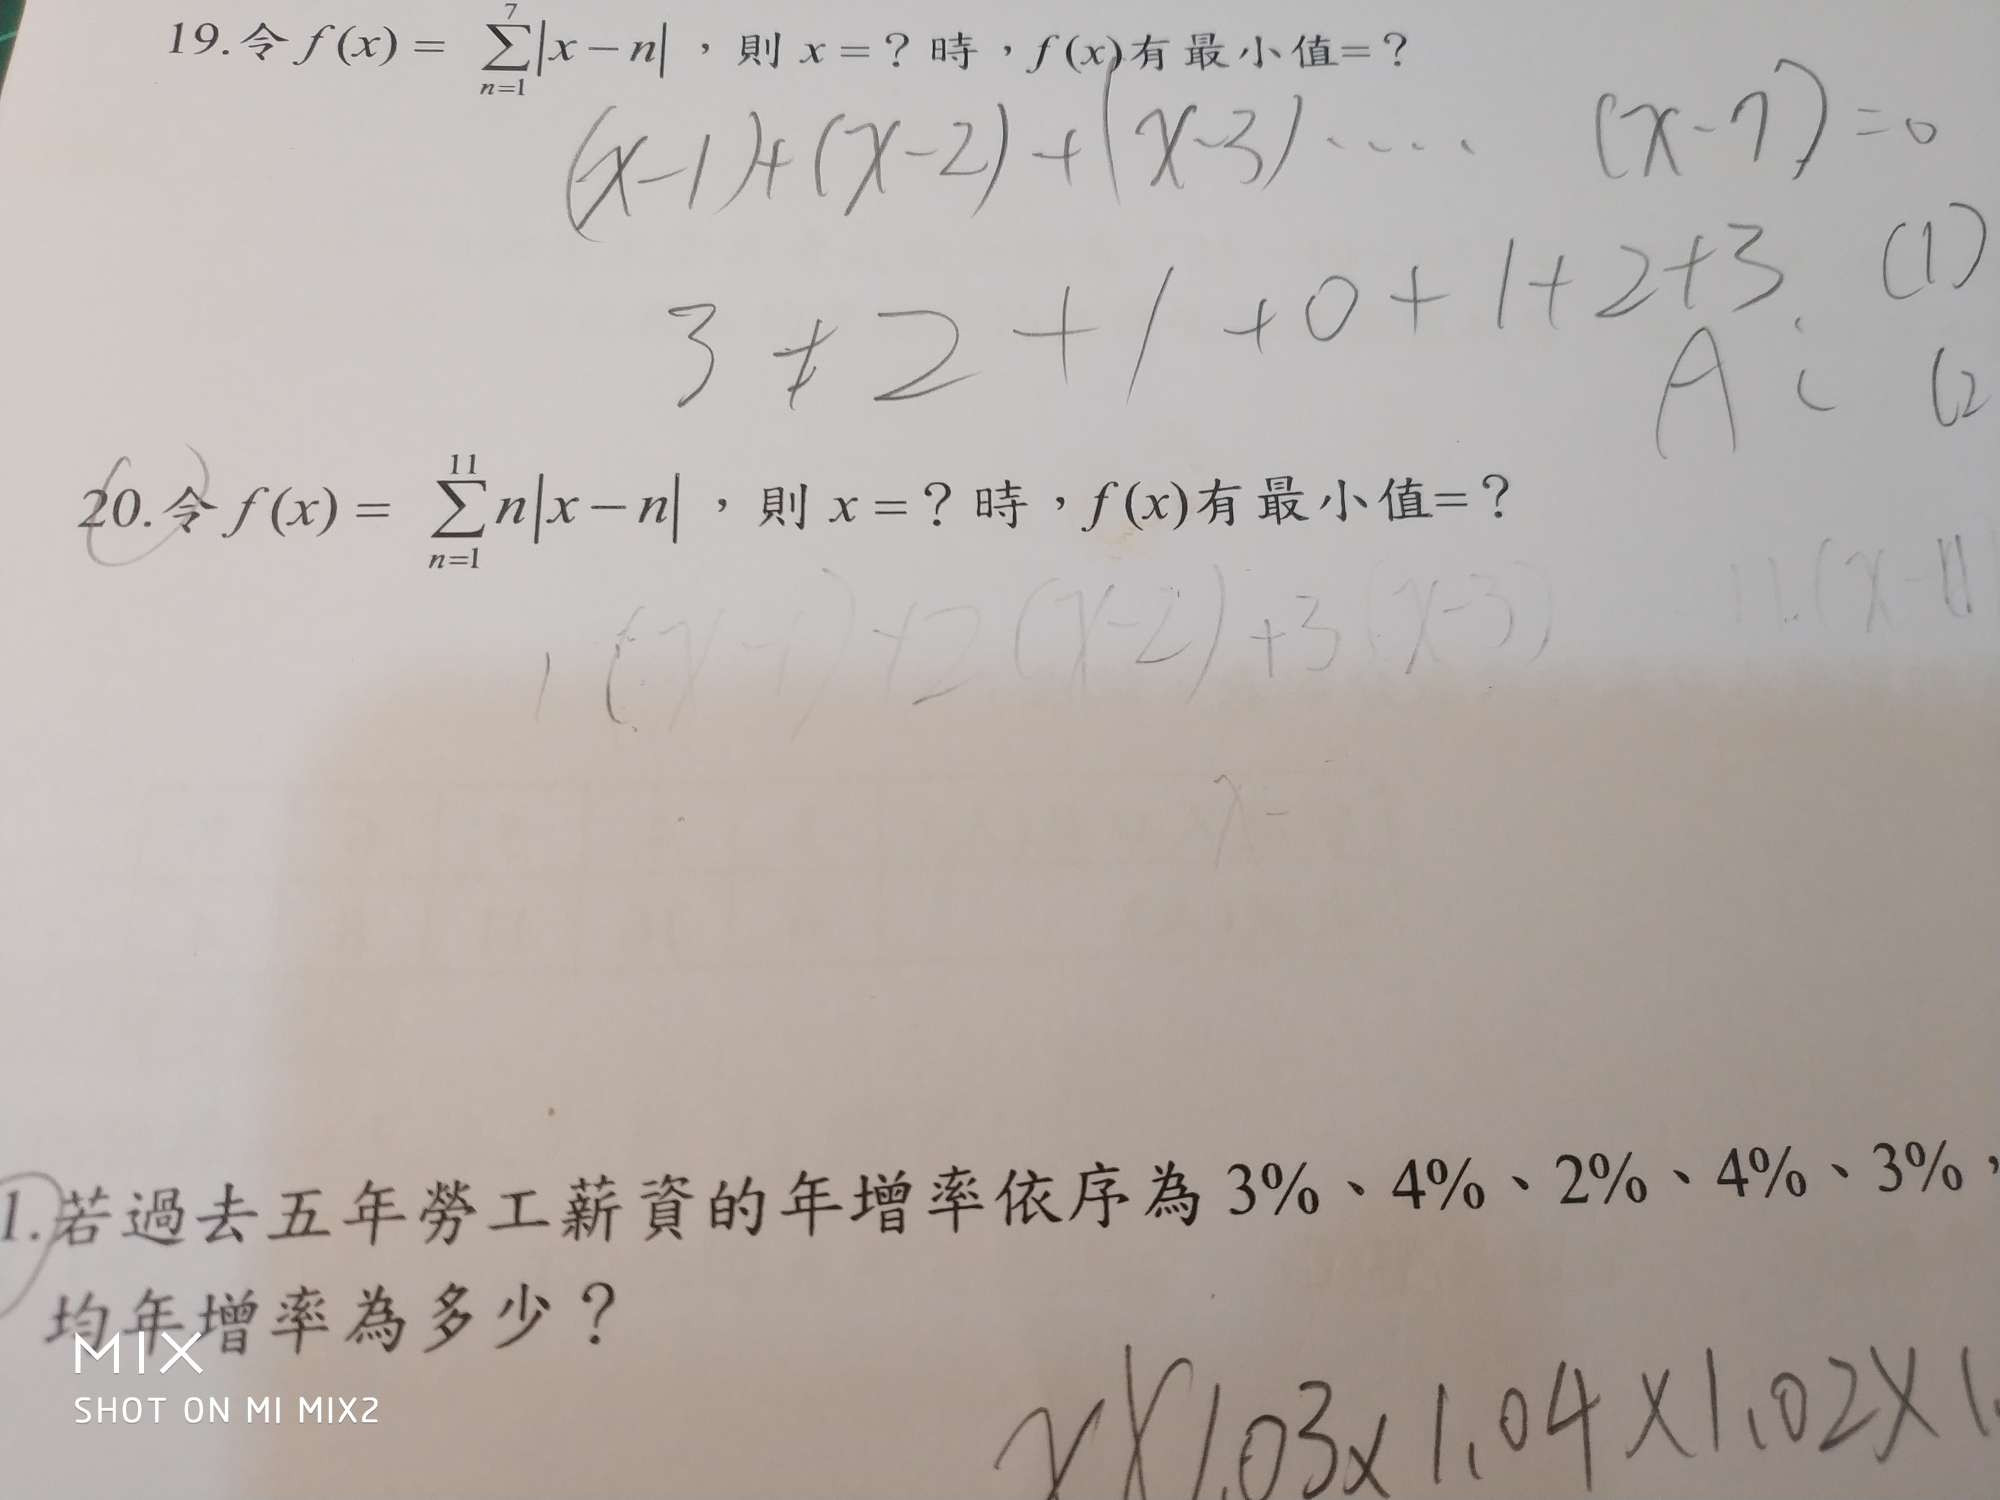 19.令 f(x) = \sum_{n=1}^{7}|x-n|，則 x=？時，f(x)有最小值=？
(x-1)+(x-2)+(x-3)..... (x-7)=0
3+2+1+0+1+2+3 (1)
A: (2
20.令 f(x) = \sum_{n=1}^{11}n|x-n|，則 x=？時，f(x)有最小值=？
1(x-1)+2(x-2)+3(x-3) 11.(x-11
x-
1.若過去五年勞工薪資的年增率依序為3%、4%、2%、4%、3%，
均年增率為多少？
1.03x1.04x1.02x1.
MIX
SHOT ON MI MIX2